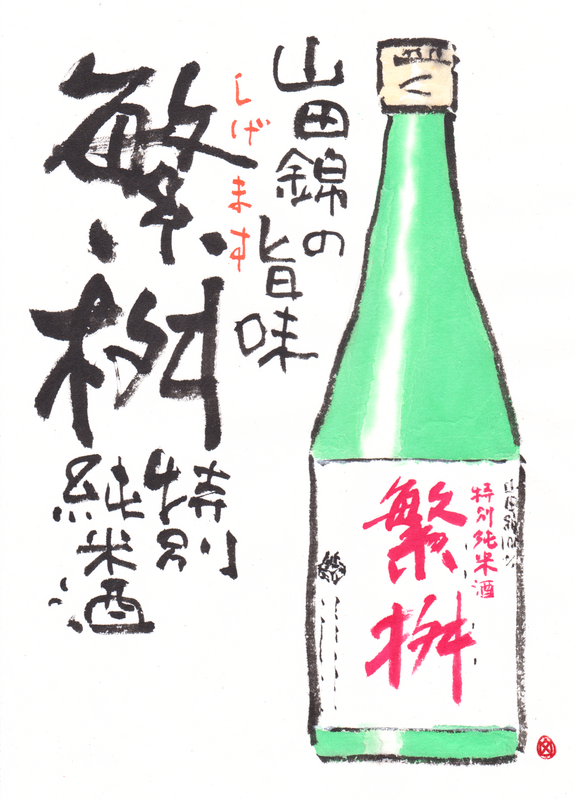 山田錦の
旨味
しげます
繁桝
特別
純米酒
特別純米酒
繁桝